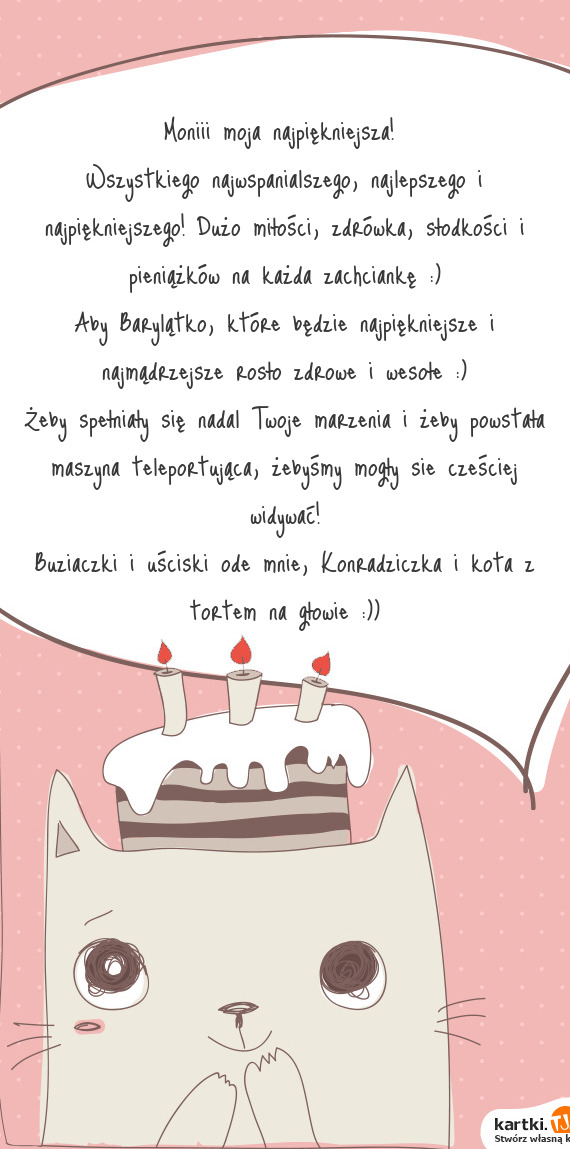 Moniii moja najpiękniejsza!
Wszystkiego najwspanialszego, najlepszego i
najpiękniejszego! Dużo miłości, zdrówka, słodkości i
pieniążków na każda zachciankę :)
Aby Barylątko, które będzie najpiękniejsze i
najmądrzejsze rosło zdrowe i wesołe :)
Żeby spełniały się nadal Twoje marzenia i żeby powstała
maszyna teleportująca, żebyśmy mogły sie cześciej
widywać!
Buziaczki i uściski ode mnie, Konradziczka i kota z
tortem na głowie :))
kartki.TJ
Stwórz własną k